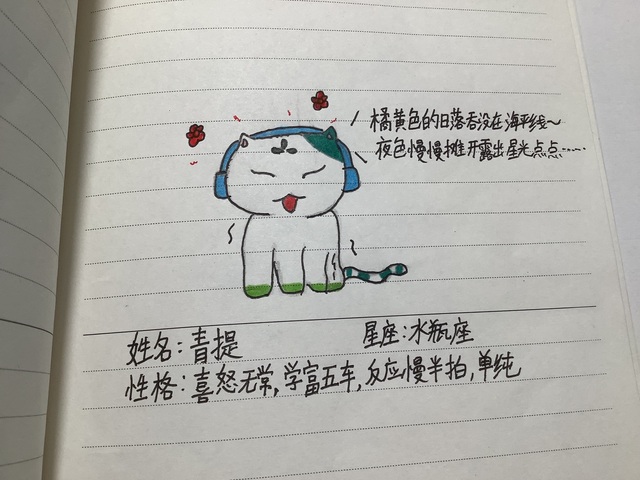 橘黄色的日落吞没在海平线~
夜色慢慢摊开露出星光点点……
姓名:青提
星座:水瓶座
性格:喜怒无常,学富五车,反应慢半拍,单纯